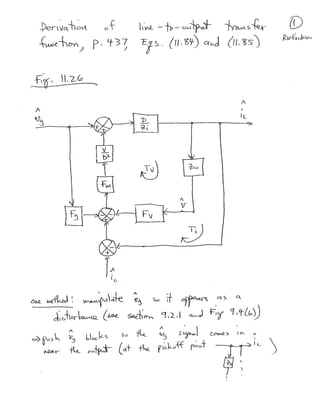 Derivation of line-to-output transfer ①
function, p. 437, Eqs. (11.84) and (11.85)
Fig. 11.26
v̂g
D
Zi
îL
V
D²
Tv
Zo
Fm
Fg
Fv
v̂
Ti
îc
one method: manipulate v̂g so it appears as a
disturbance (see section 9.2.1 and Fig 9.4(b))
⇒ push v̂g blocks so the v̂g signal comes in
near the output (at the pickoff point îL )
Zo